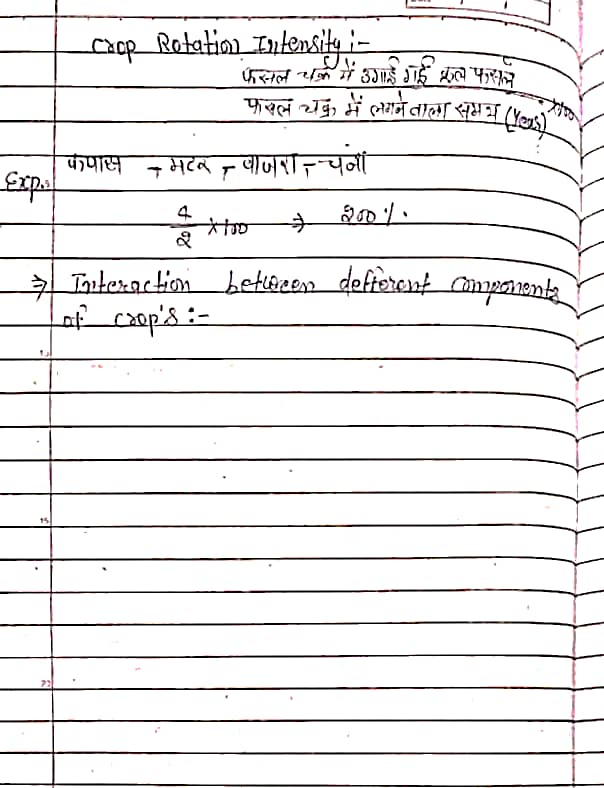 Crop Rotation Intensity :-
फसल चक्र में उगाई गई कुल फसले
फसल चक्र में लगने वाला समय (Years) ×100
Exp.: कपास - मटर - बाजरा - चना
4/2 ×100 ⇒ 200 %.
⇒ Interaction between defferent components
of crop's :-
15